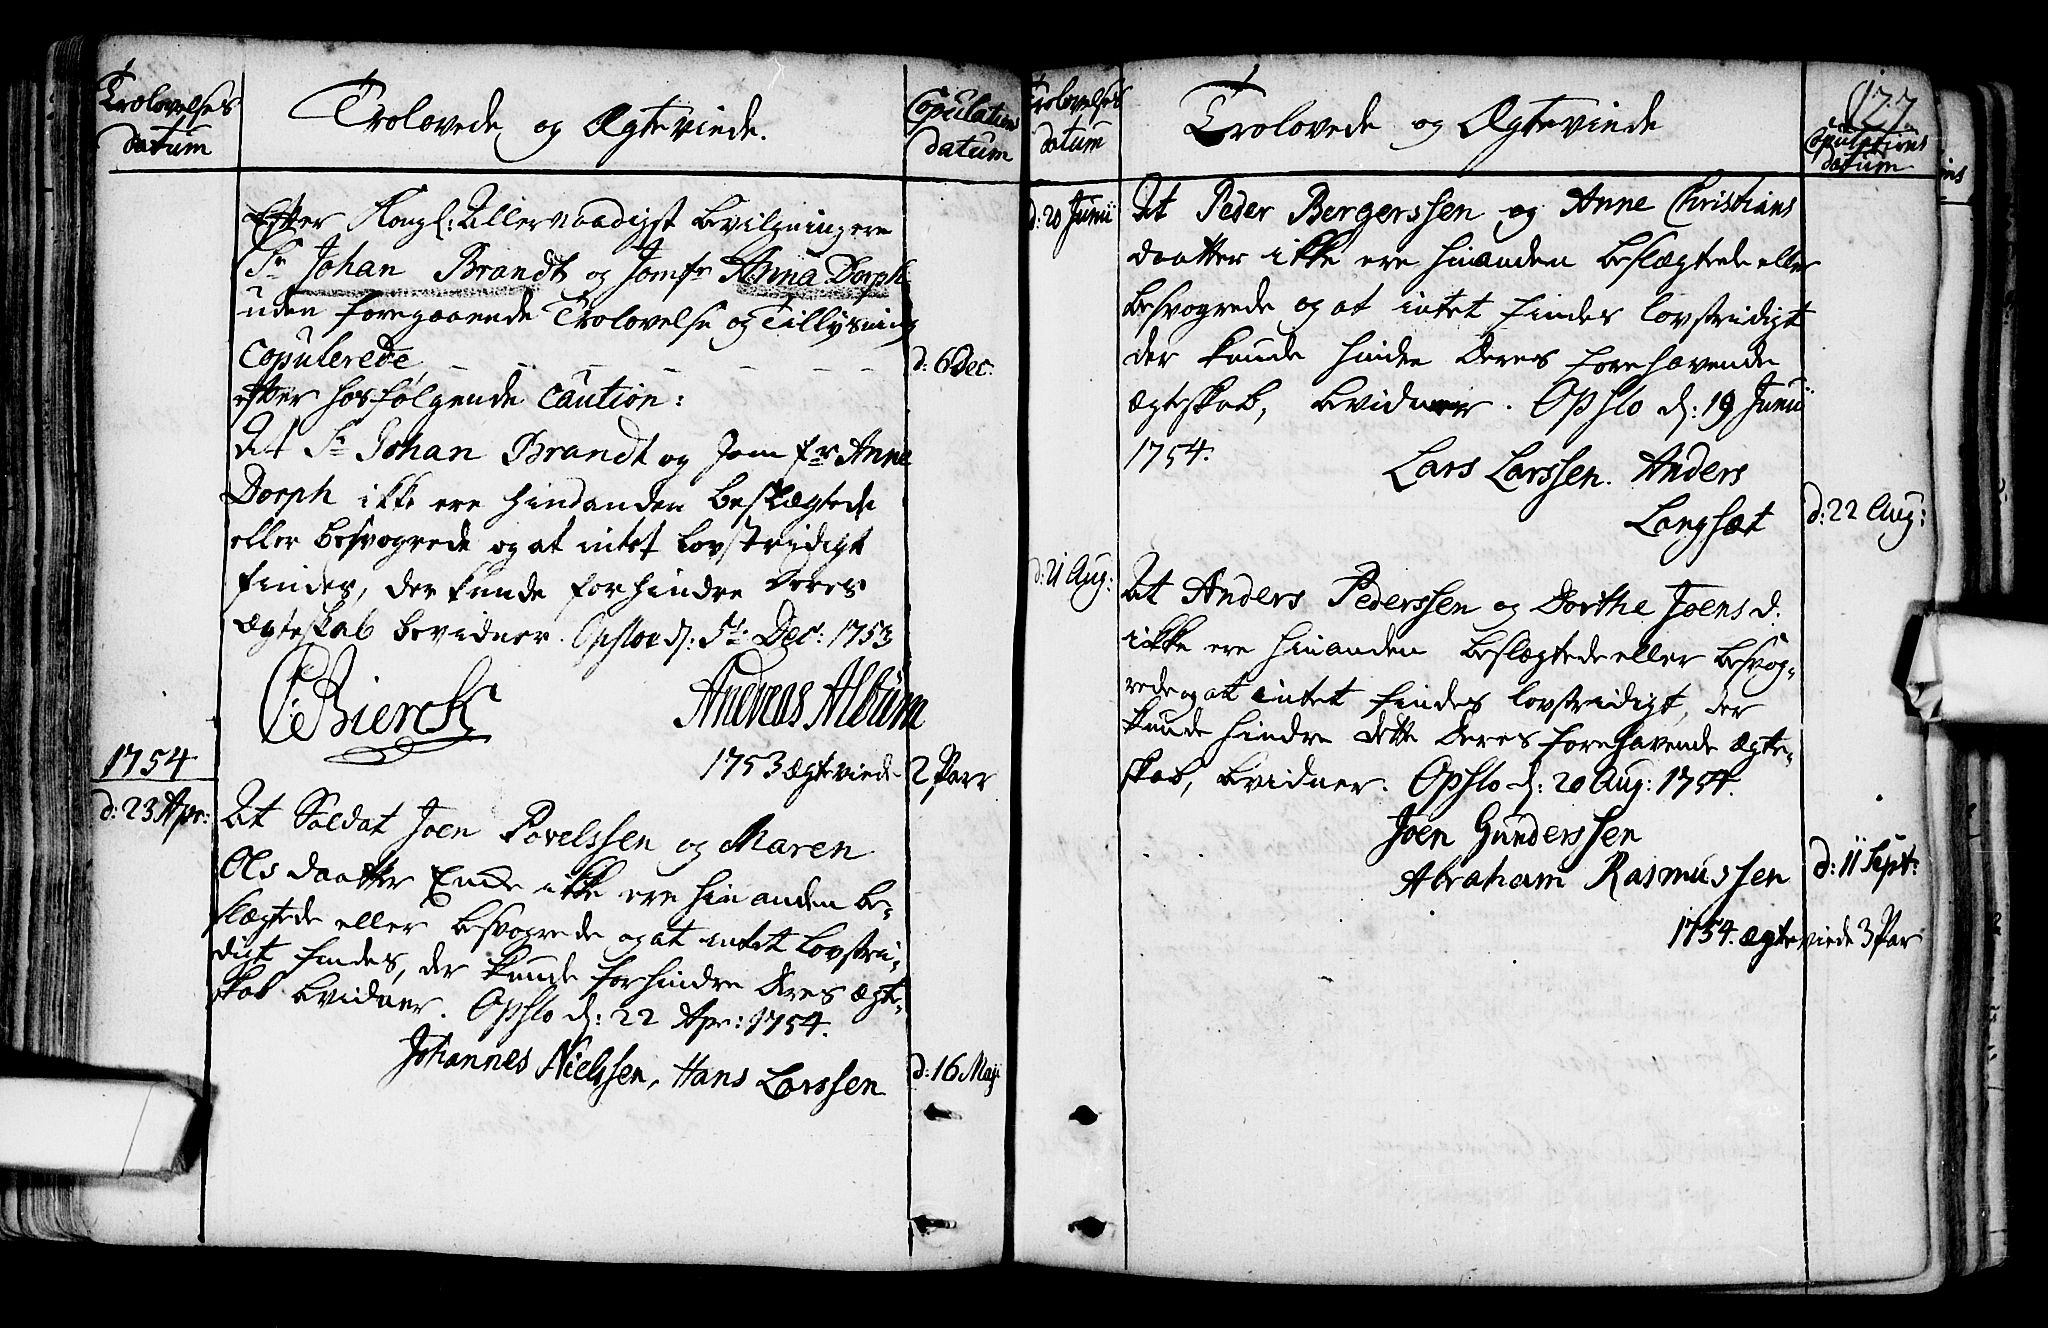 Trolovelses
datum
Trolovede og Ægteviede.
Copulations
datum
Efter Kongl: Allernaadigst Bevilgning ere
Sr Johan Brandt og Jomfr Anna Dorph
uden foregaaende Trolovelse og Tillysning
Copulerede
d: 6 Dec:
efter hosfølgende Caution:
At Sr Johan Brandt og Jomfr Anne
Dorph ikke ere hindanden beslægtede
eller besvogrede og at intet lovstridigt
findes, der kunde forhindre deres
Ægteskab bevidner. Opsloe d: 5te Dec: 1753
C: Bierck Andreas Album
1753 ægteviede 2 Parr
1754
d: 23 Apr:
At Soldat Joen Povelssen og Maren
Olsdaatter Ende ikke ere hinanden be-
slægtede eller besvogrede og at intet lovstri-
digt findes, der kunde forhindre deres Ægte-
skab bevidner. Opslo d: 22 Apr: 1754.
Johannes Nielssen, Hans Larssen
d: 16 Maji
Trolovelses
datum
Trolovede og Ægteviede
127.
Copulations
datum
d: 20 Junii
At Peder Bergerssen og Anne Christians
daatter ikke ere hinanden beslægtede eller
besvogrede og at intet findes lovstridigt
der kunde hindre deres forehavende
Ægteskab, bevidner. Opslo d: 19 Junii
1754.
Lars Larssen. Anders
Langsæt
d: 22 Aug:
d: 21 Aug:
At Anders Pederssen og Dorthe Joensd:
ikke ere hinanden beslægtede eller besvog-
rede og at intet findes lovstridigt, der
kunde hindre dette deres forehavende Ægte-
skab, bevidner. Opslo d: 20 Aug: 1754.
Joen Gunderssen
Abraham Rasmussen
d: 11 Sept:
1754. ægteviede 3 Par